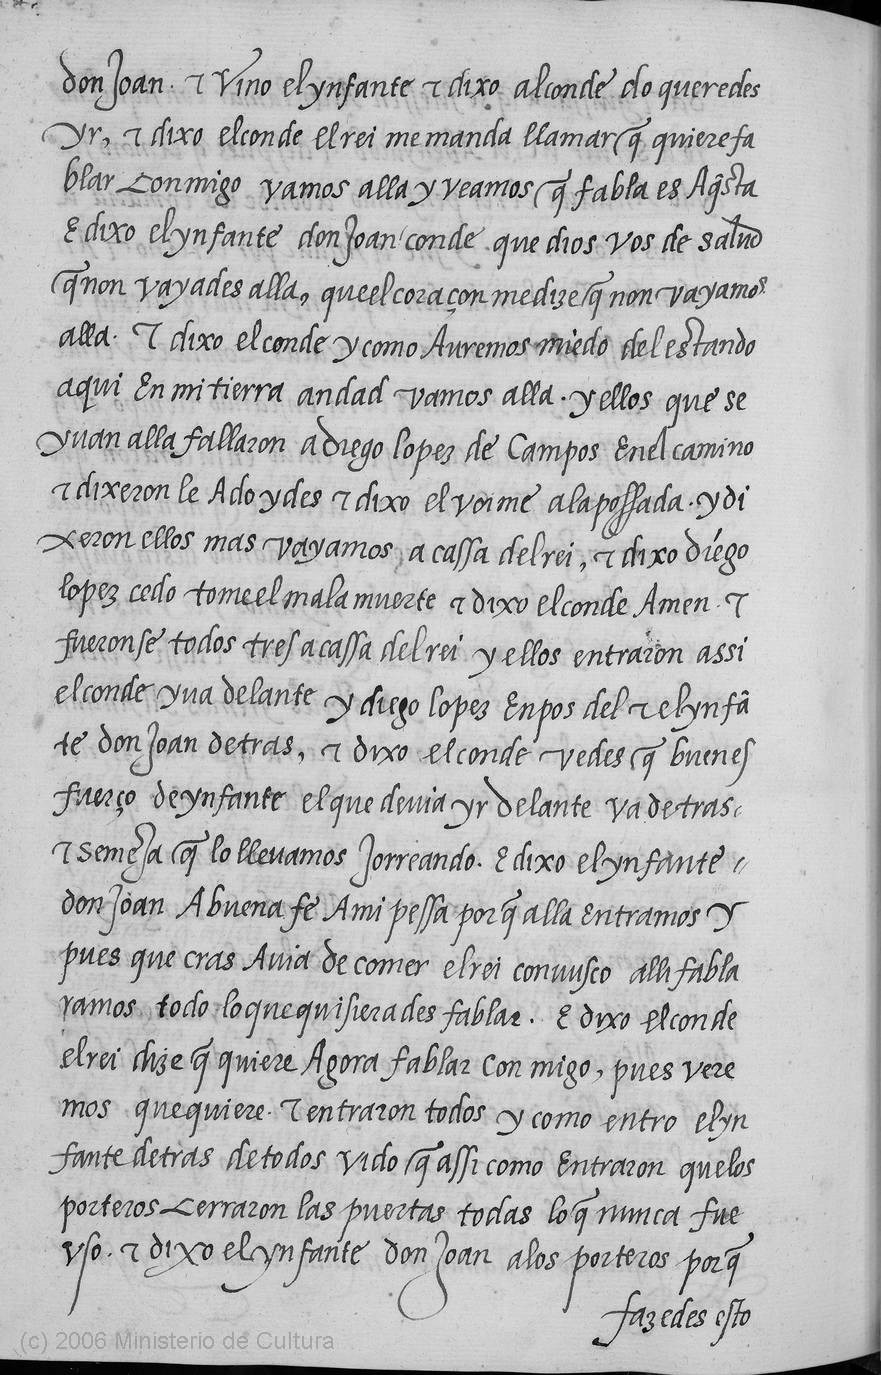 don Joan. τ Vino el ynfante τ dixo al conde do queredes
yr, τ dixo el conde el rei me manda llamar q̃ quiere fa
blar Conmigo vamos alla y veamos q̃ fabla es Aq̃sta
E dixo el ynfante don Joan conde que dios vos de salud
q̃ non vayades alla, que el coraçon me dize q̃ non vayamos
alla. τ dixo el conde y como Auremos miedo del estando
aqui En mi tierra andad vamos alla. y ellos que se
yuan alla fallaron a diego lopez de Campos En el camino
τ dixeron le Ado ydes τ dixo el voime a la possada. y di
xeron ellos mas vayamos a cassa del rei, τ dixo diego
lopez cedo tome el mala muerte τ dixo el conde Amen. τ
fueronse todos tres a cassa del rei y ellos entraron assi
el conde yua delante y diego lopez Enpos del τ el ynfã
te don Joan detras, τ dixo el conde vedes q̃ buen es
fuerço de ynfante el que deuia yr delante va detras
τ semeja q̃ lo lleuamos Jorreando. E dixo el ynfante
don Joan A buena fe Ami pessa porq̃ alla Entramos y
pues que cras Auia de comer el rei convusco alli fabla
ramos todo lo que quisierades fablar. E dixo el conde
el rei dize q̃ quiere Agora fablar Con migo, pues vere
mos que quiere. τ entraron todos y como entro el yn
fante detras de todos vido q̃ assi como Entraron que los
porteros Cerraron las puertas todas lo q̃ nunca fue
vso. τ dixo el ynfante don Joan a los porteros porq̃
fazedes esto
(c) 2006 Ministerio de Cultura